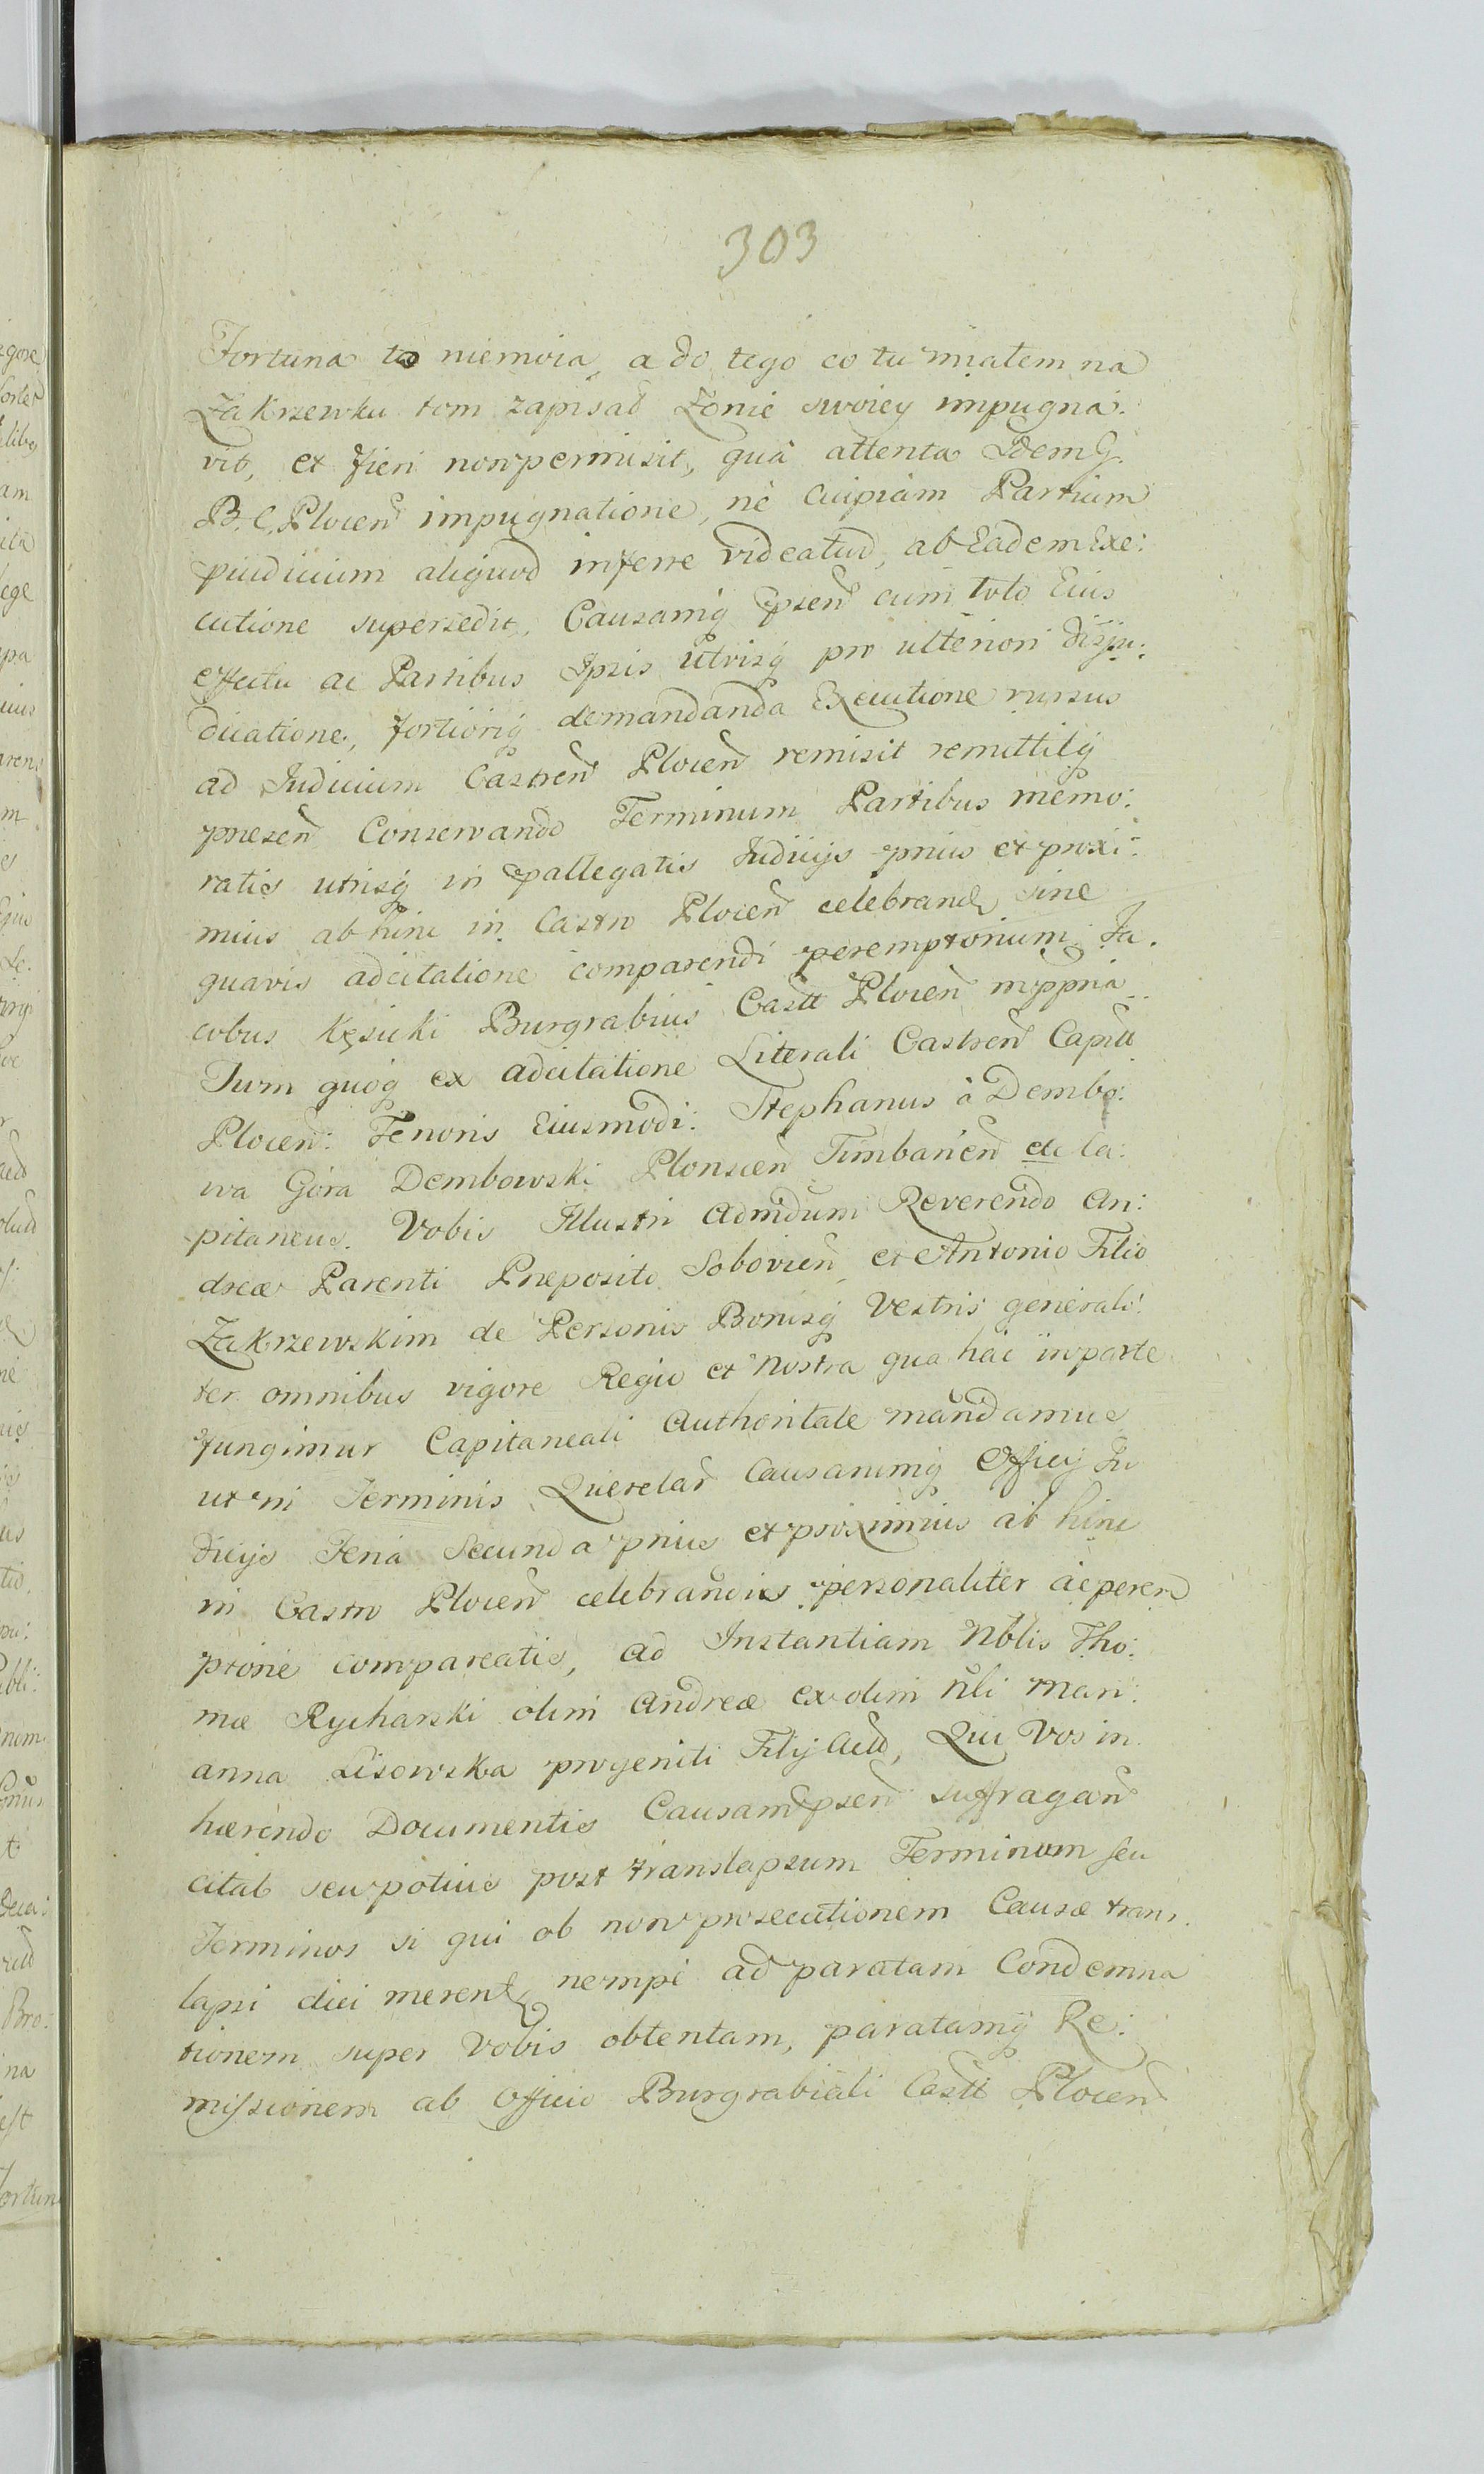 303
Fortuna to niemoia, a do tego co tu miałem na
Zakrzewku tom zapisał Zonie swoiey impugna:
vit, et fieri non permisit, quâ attenta Idem G.
B. C. Plocen impugnatione, ne cuipiam Partium
piudicium aliquod inferre videatur, ab Eadem Exe:
cutione supersedit, Causamq psen cum toto Eius
effectu ac Partibus Ipsis utrisq pro ulteriori disju:
dicatione, fortioriq demandanda Executione rursus
ad Judicium Castren Plocen remisit remittitq
presen Conservando Terminum Partibus memo:
ratis utrisq in pallegatis Judicijs prius et proxi:
mius ab hinc in Castro Plocen celebrand sine
quavis adcitatione comparendi peremptorium. Ja:
cobus Kęsicki Burgrabius Castt Plocen mppria
Tum quoq ex adcitatione Literali Castren Capitt
Plocen: Tenoris Eiusmodi: Stephanus à Dembo:
wa Góra Dembowski Plonscen Timbarien etc Ca:
pitaneus. Vobis Illustri Admdum Reverendo An:
dreæ Parenti Præposito Sobovien et Antonio Filio
Zakrzewskim de Personis Bonisq Vestris generali:
ter omnibus vigore Regio et Nostra qua hac in parte
fungimur Capitaneali Authoritate mandamus
ut in Terminis Querelar Causarumq Officij Ju
dicijs Feria Secunda prius et proximius ab hinc
in Castro Plocen celebrandis personaliter ac perem
ptorie compareatis, ad Instantiam Nblis Tho:
mæ Rycharski olim Andreæ ex olim Nli Mari:
anna Lisowska progeniti Filij Actt, Qui Vos in
hærendo Documentis Causam psen suffragan
citat seu potius post translapsum Terminum seu
Terminos si qui ob non prosecutionem Causæ trans
lapsi dici merent, nempe ad paratam Condemna
tionem super Vobis obtentam, paratamq Re:
missionem ab Officio Burgrabiali Castt Plocen